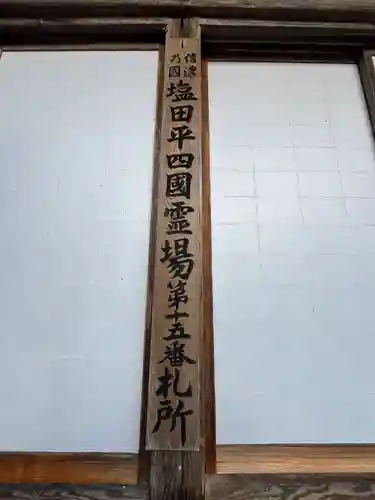 信濃乃國
塩田平四國霊場第十五番札所